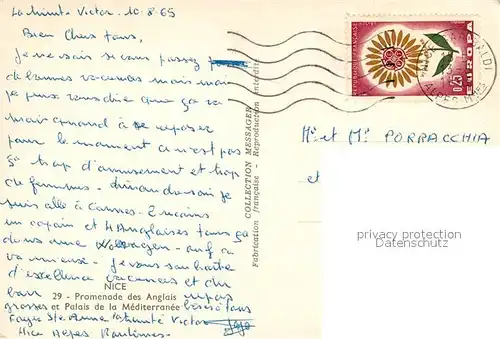 La Trinité Victor. 10-8-65
Bien Chers tous,
Je ne sais si vous passez
de bonnes vacances mais moi
je peux vous dire que ça va
mais quand à se reposer
pour le moment ce n'est pas
ça trop d'amusement et trop
de femmes - dimanche soir je
suis allé à Cannes - 2
un copain et 4 Anglaises tous ça
dans une Wolsvagen -
Je vous souhaite
d'excellence vacances et du
bon
NICE
29 - Promenade des Anglais
et Palais de la Méditerranée
grosses bises à tous
Ste Anne la Trinité Victor
Nice Alpes Maritimes -
COLLECTION MESSAGER
Fabrication française - Reproduction interdite
REPUBLIQUE FRANÇAISE
EUROPA
0,25
ALPES MMES
Mr et Me PORRACCHIA
et
privacy protection
Datenschutz